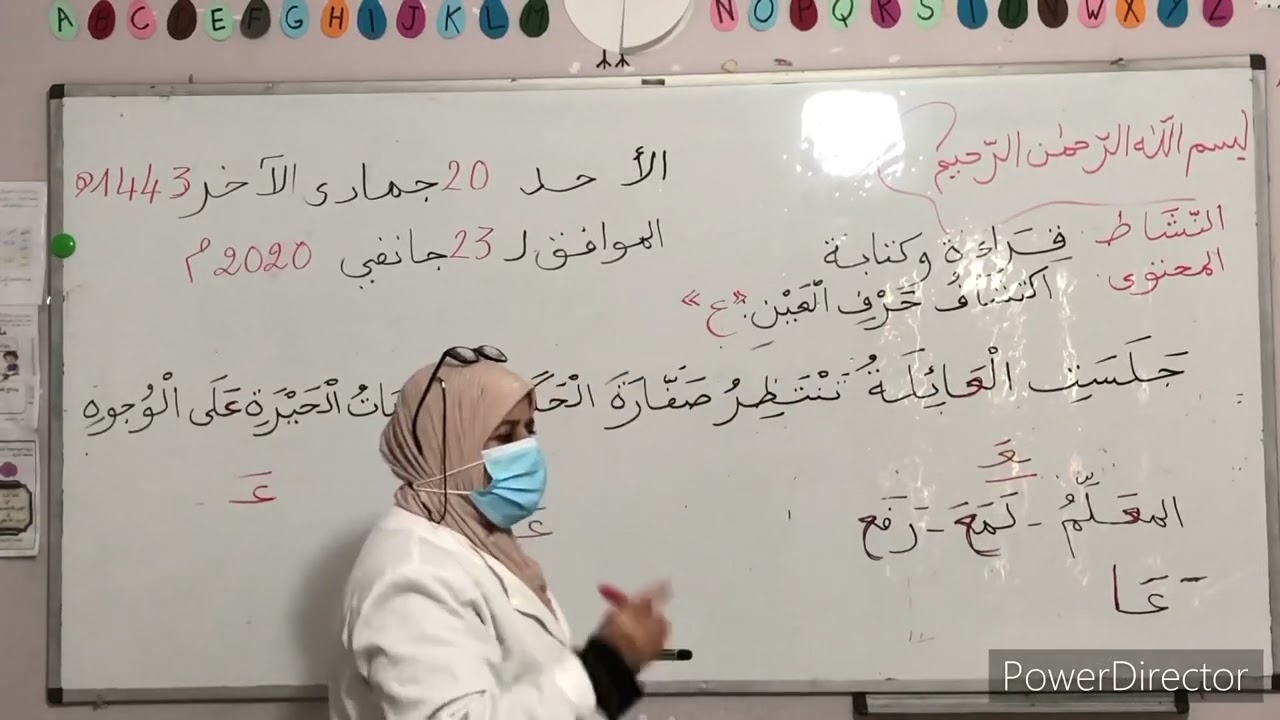 A B C D E F G H I J K L M N O P Q R S T U V W X Y Z
بسم اللّٰه الرّحمٰن الرّحيم
الأحد 20 جمادى الآخر 1443ه
الموافق لـ 23 جانفي 2020 م
النّشاط قِرَاءَة وكتابة
المحتوى اكتشَافُ حَرْفِ الْعَيْنِ: «ع»
جَلَسَتِ الْعَائِلَةُ تَنْتَظِرُ صَفَّارَةَ الْحَيْرَةِ عَلَى الْوُجوهِ
عَـ
عَـ
ـعَـ
المعَلِّمُ - لَمَعَ - رَفَع
- عَا
PowerDirector